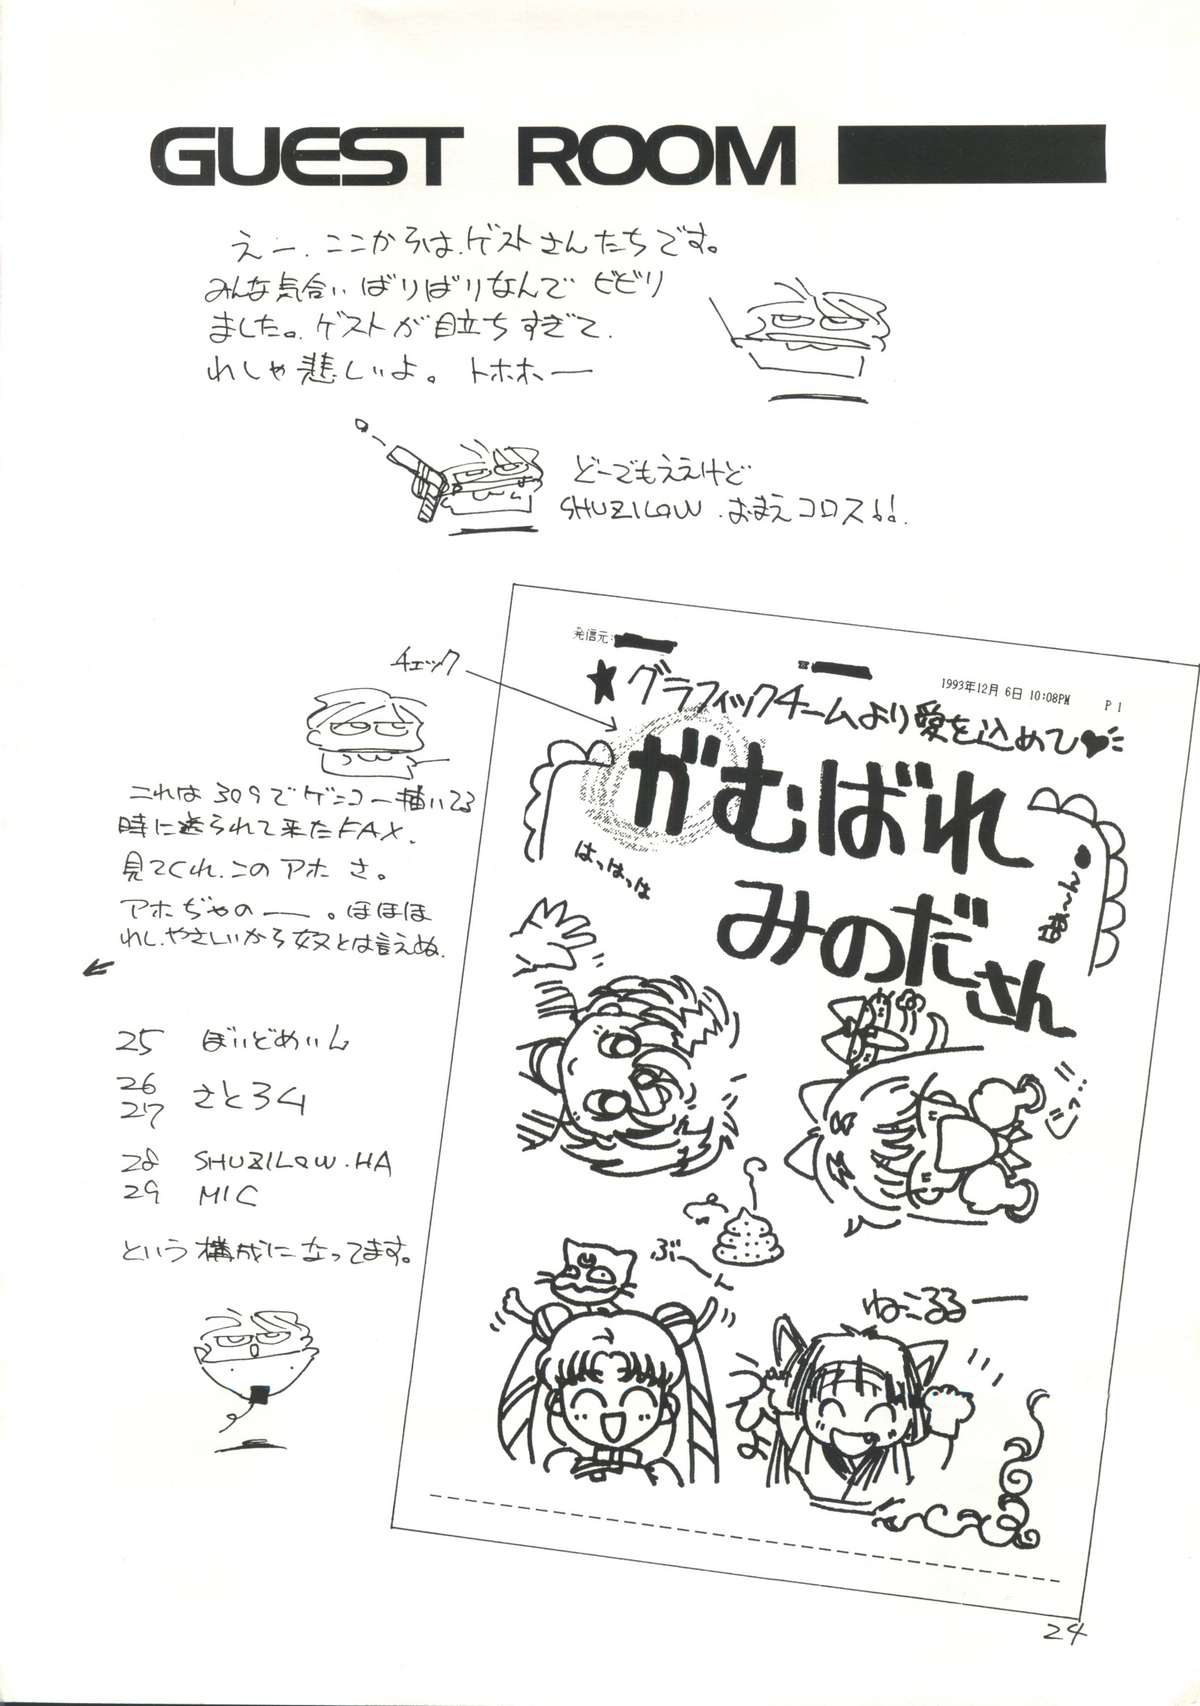 GUEST ROOM
えー、ここからは、ゲストさんたちです。
みんな気合いばりばりなんでビビリ
ました。ゲストが目立ちすぎて、
れしゃ悲しいよ。トホホー
どーでもええけど
SHUZILOW.おまえコロス!!
発信元:
1993年12月 6日 10:08PM P 1
チェック
★グラフィックチームより愛を込めて♥
がむばれ
みのださん
はっはっは
これは309でゲンコー描いてる
時に送られて来たFAX.
見てくれ、このアホさ。
アホぢゃのー。ほほほ
れしやさしいから女又とは言えぬ.
25 ぼいどめいん
26
27 さとろム
28 SHUZILOW.HA
29 MIC
という構成になってます。
ぶ〜ん
ねこるるー
24